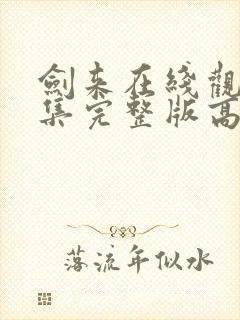 劍来在綫觀
集完整版高
落流年似水